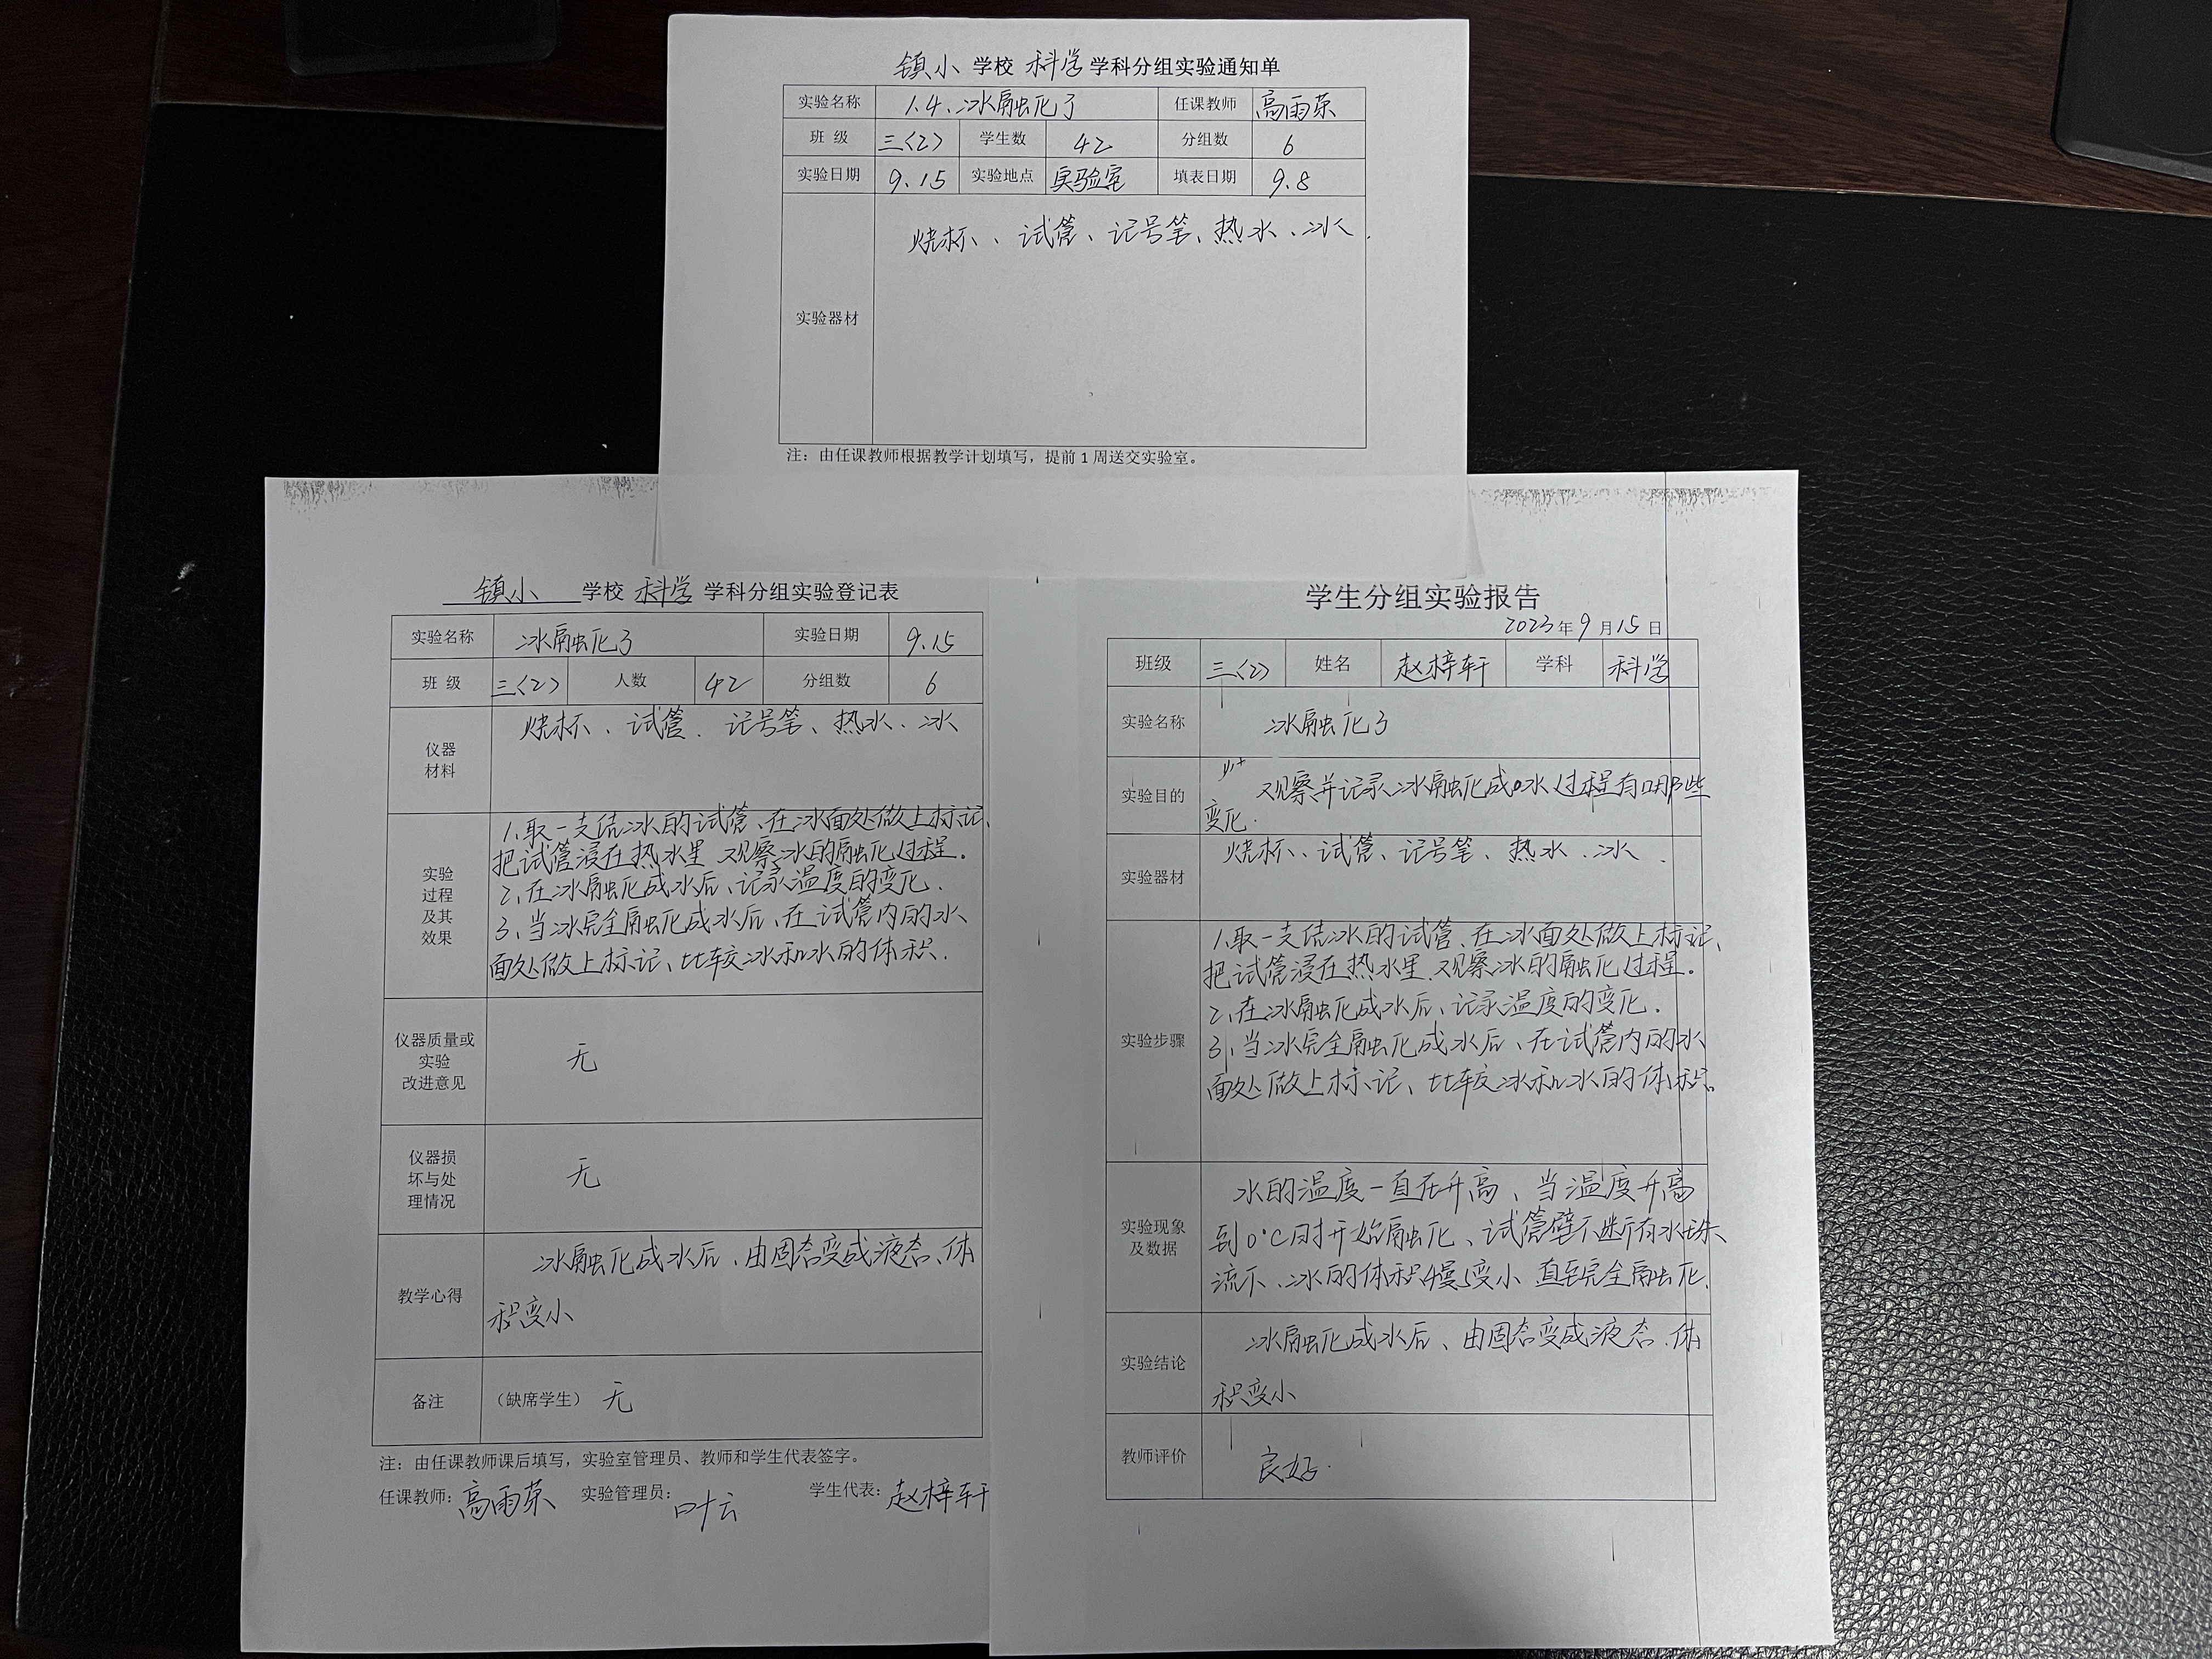 镇小 学校 科学 学科分组实验通知单
实验名称 1.4.冰融化了 任课教师 高雨荣
班 级 三〈2〉 学生数 42 分组数 6
实验日期 9.15 实验地点 实验室 填表日期 9.8
实验器材 烧杯、试管、记号笔、热水、冰.
注：由任课教师根据教学计划填写，提前1周送交实验室。
镇小 学校 科学 学科分组实验登记表
实验名称 冰融化了 实验日期 9.15
班 级 三〈2〉 人数 42 分组数 6
仪器
材料
烧杯、试管、记号笔、热水、冰
实验
过程
及其
效果
1、取一支结冰的试管、在冰面处做上标记、
把试管浸在热水里 观察冰的融化过程。
2、在冰融化成水后、记录温度的变化.
3、当冰完全融化成水后、在试管内的水
面处做上标记、比较冰和水的体积.
仪器质量或
实验
改进意见
无
仪器损
坏与处
理情况
无
教学心得
冰融化成水后、由固态变成液态、体
积变小
备注 （缺席学生） 无
注：由任课教师课后填写，实验室管理员、教师和学生代表签字。
任课教师：高雨荣 实验管理员：叶云 学生代表：赵梓轩
学生分组实验报告
2023年9月15日
班级 三〈2〉 姓名 赵梓轩 学科 科学
实验名称 冰融化了
实验目的
观察并记录冰融化成水过程有哪些
变化.
实验器材 烧杯、试管、记号笔、热水、冰.
实验步骤
1、取一支结冰的试管、在冰面处做上标记、
把试管浸在热水里.观察冰的融化过程。
2、在冰融化成水后、记录温度的变化.
3、当冰完全融化成水后、在试管内的水
面处做上标记、比较冰和水的体积。
实验现象
及数据
水的温度一直在升高、当温度升高
到0℃时开始融化、试管壁不断有水珠
流下.冰的体积慢慢变小 直至完全融化.
实验结论
冰融化成水后、由固态变成液态.体
积变小
教师评价 良好.